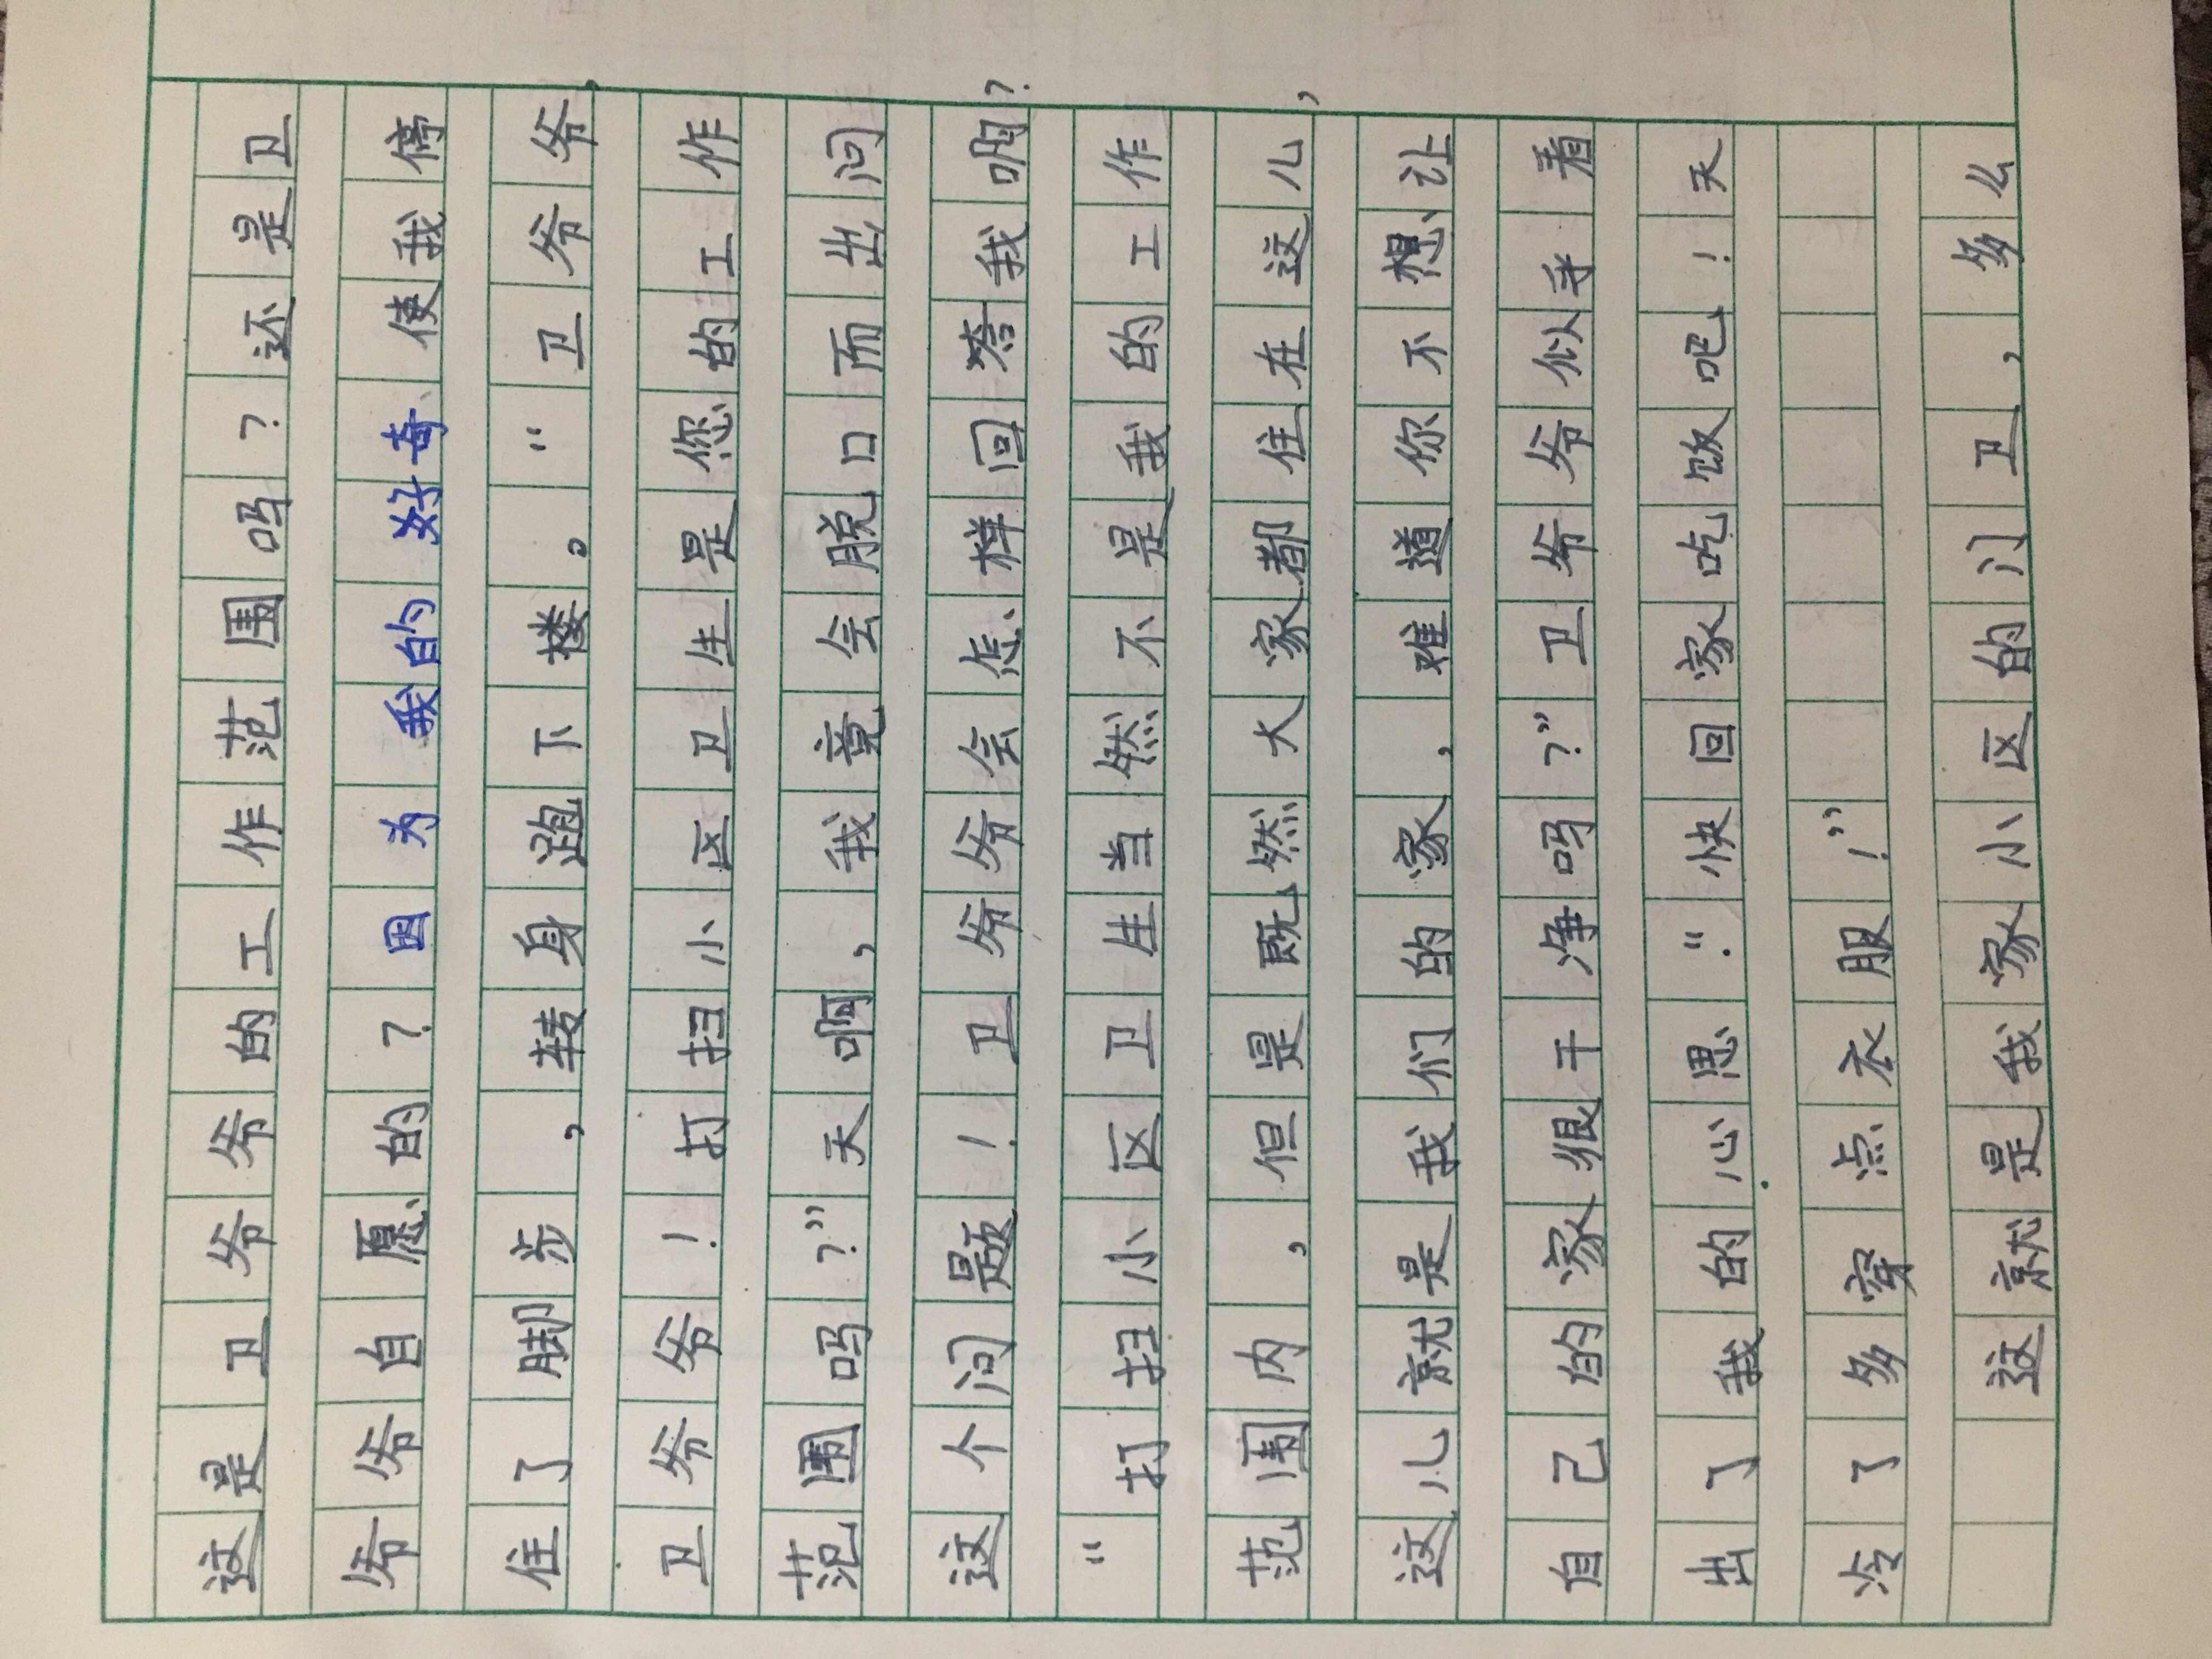 这是卫爷爷的工作范围吗？还是卫
爷爷自愿的？因为我的好奇使我停
住了脚步，转身跑下楼。“卫爷爷，
卫爷爷！打扫小区卫生是您的工作
范围吗？”天啊，我竟会脱口而出问
这个问题！卫爷爷会怎样回答我啊？
“打扫小区卫生当然不是我的工作
范围内，但是既然大家都住在这儿，
这儿就是我们的家，难道你不想让
自己的家很干净吗？”卫爷爷似乎看
出了我的心思：“快回家吃饭吧！天
冷了多穿点衣服！”
这就是我家小区的门卫，多么